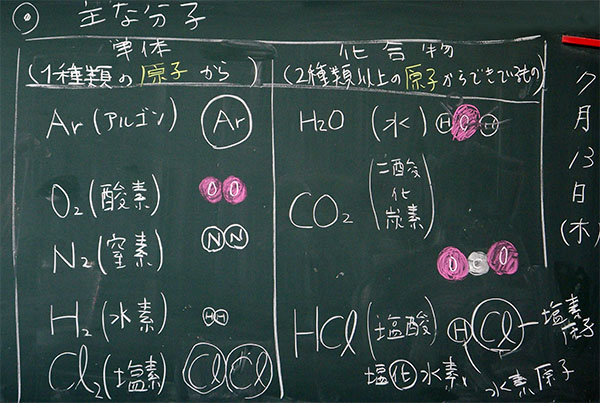 ◎ 主な分子
単体
(1種類の原子から)
Ar (アルゴン) Ar
O2 (酸素) O O
N2 (窒素) N N
H2 (水素) H H
Cl2 (塩素) Cl Cl
化合物
(2種類以上の原子からできているもの)
H2O (水) H O H
CO2 (二酸化炭素)
O C O
HCl (塩酸) H Cl 塩素原子
塩化水素 水素原子
7月13日(木)